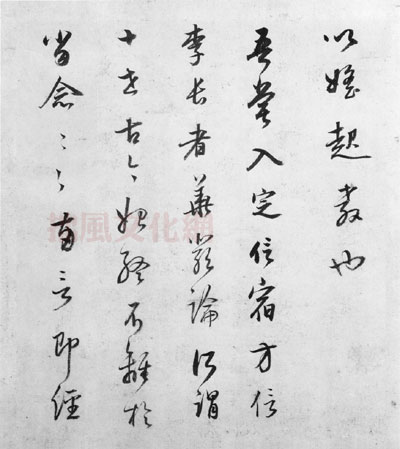 以婬起教也
吾嘗入定信宿方信
李長者華嚴論所謂
十世古今始終不離於
當念〻〻兩言即經
拙風文化網